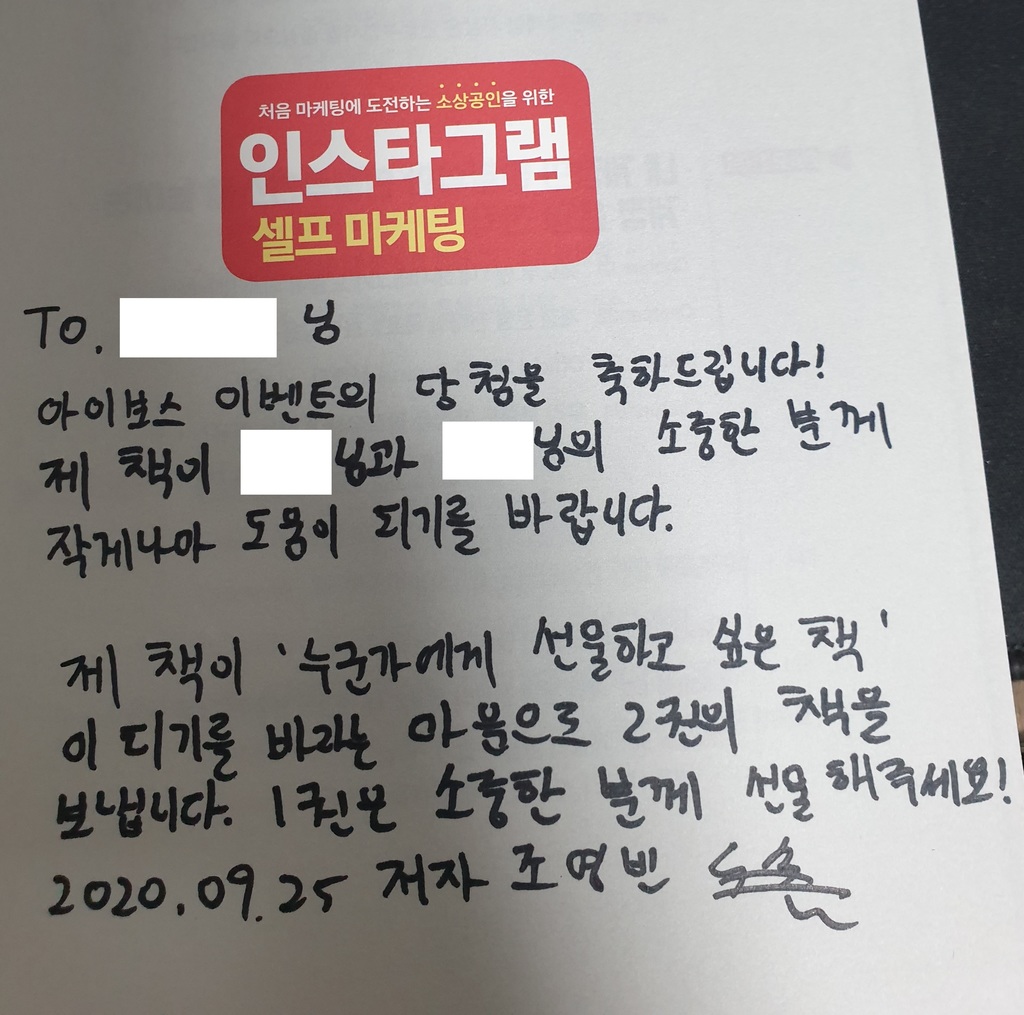 처음 마케팅에 도전하는 소상공인을 위한
인스타그램
셀프 마케팅
To. 님
아이보스 이벤트의 당첨을 축하드립니다!
제 책이 님과 님의 소중한 분께
작게나마 도움이 되기를 바랍니다.
제 책이 '누군가에게 선물하고 싶은 책'
이 되기를 바라는 마음으로 2권의 책을
보냅니다. 1권은 소중한 분께 선물해주세요!
2020.09.25 저자 조영빈